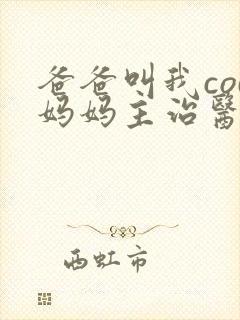 爸爸叫我co
妈妈主治醫
西虹市